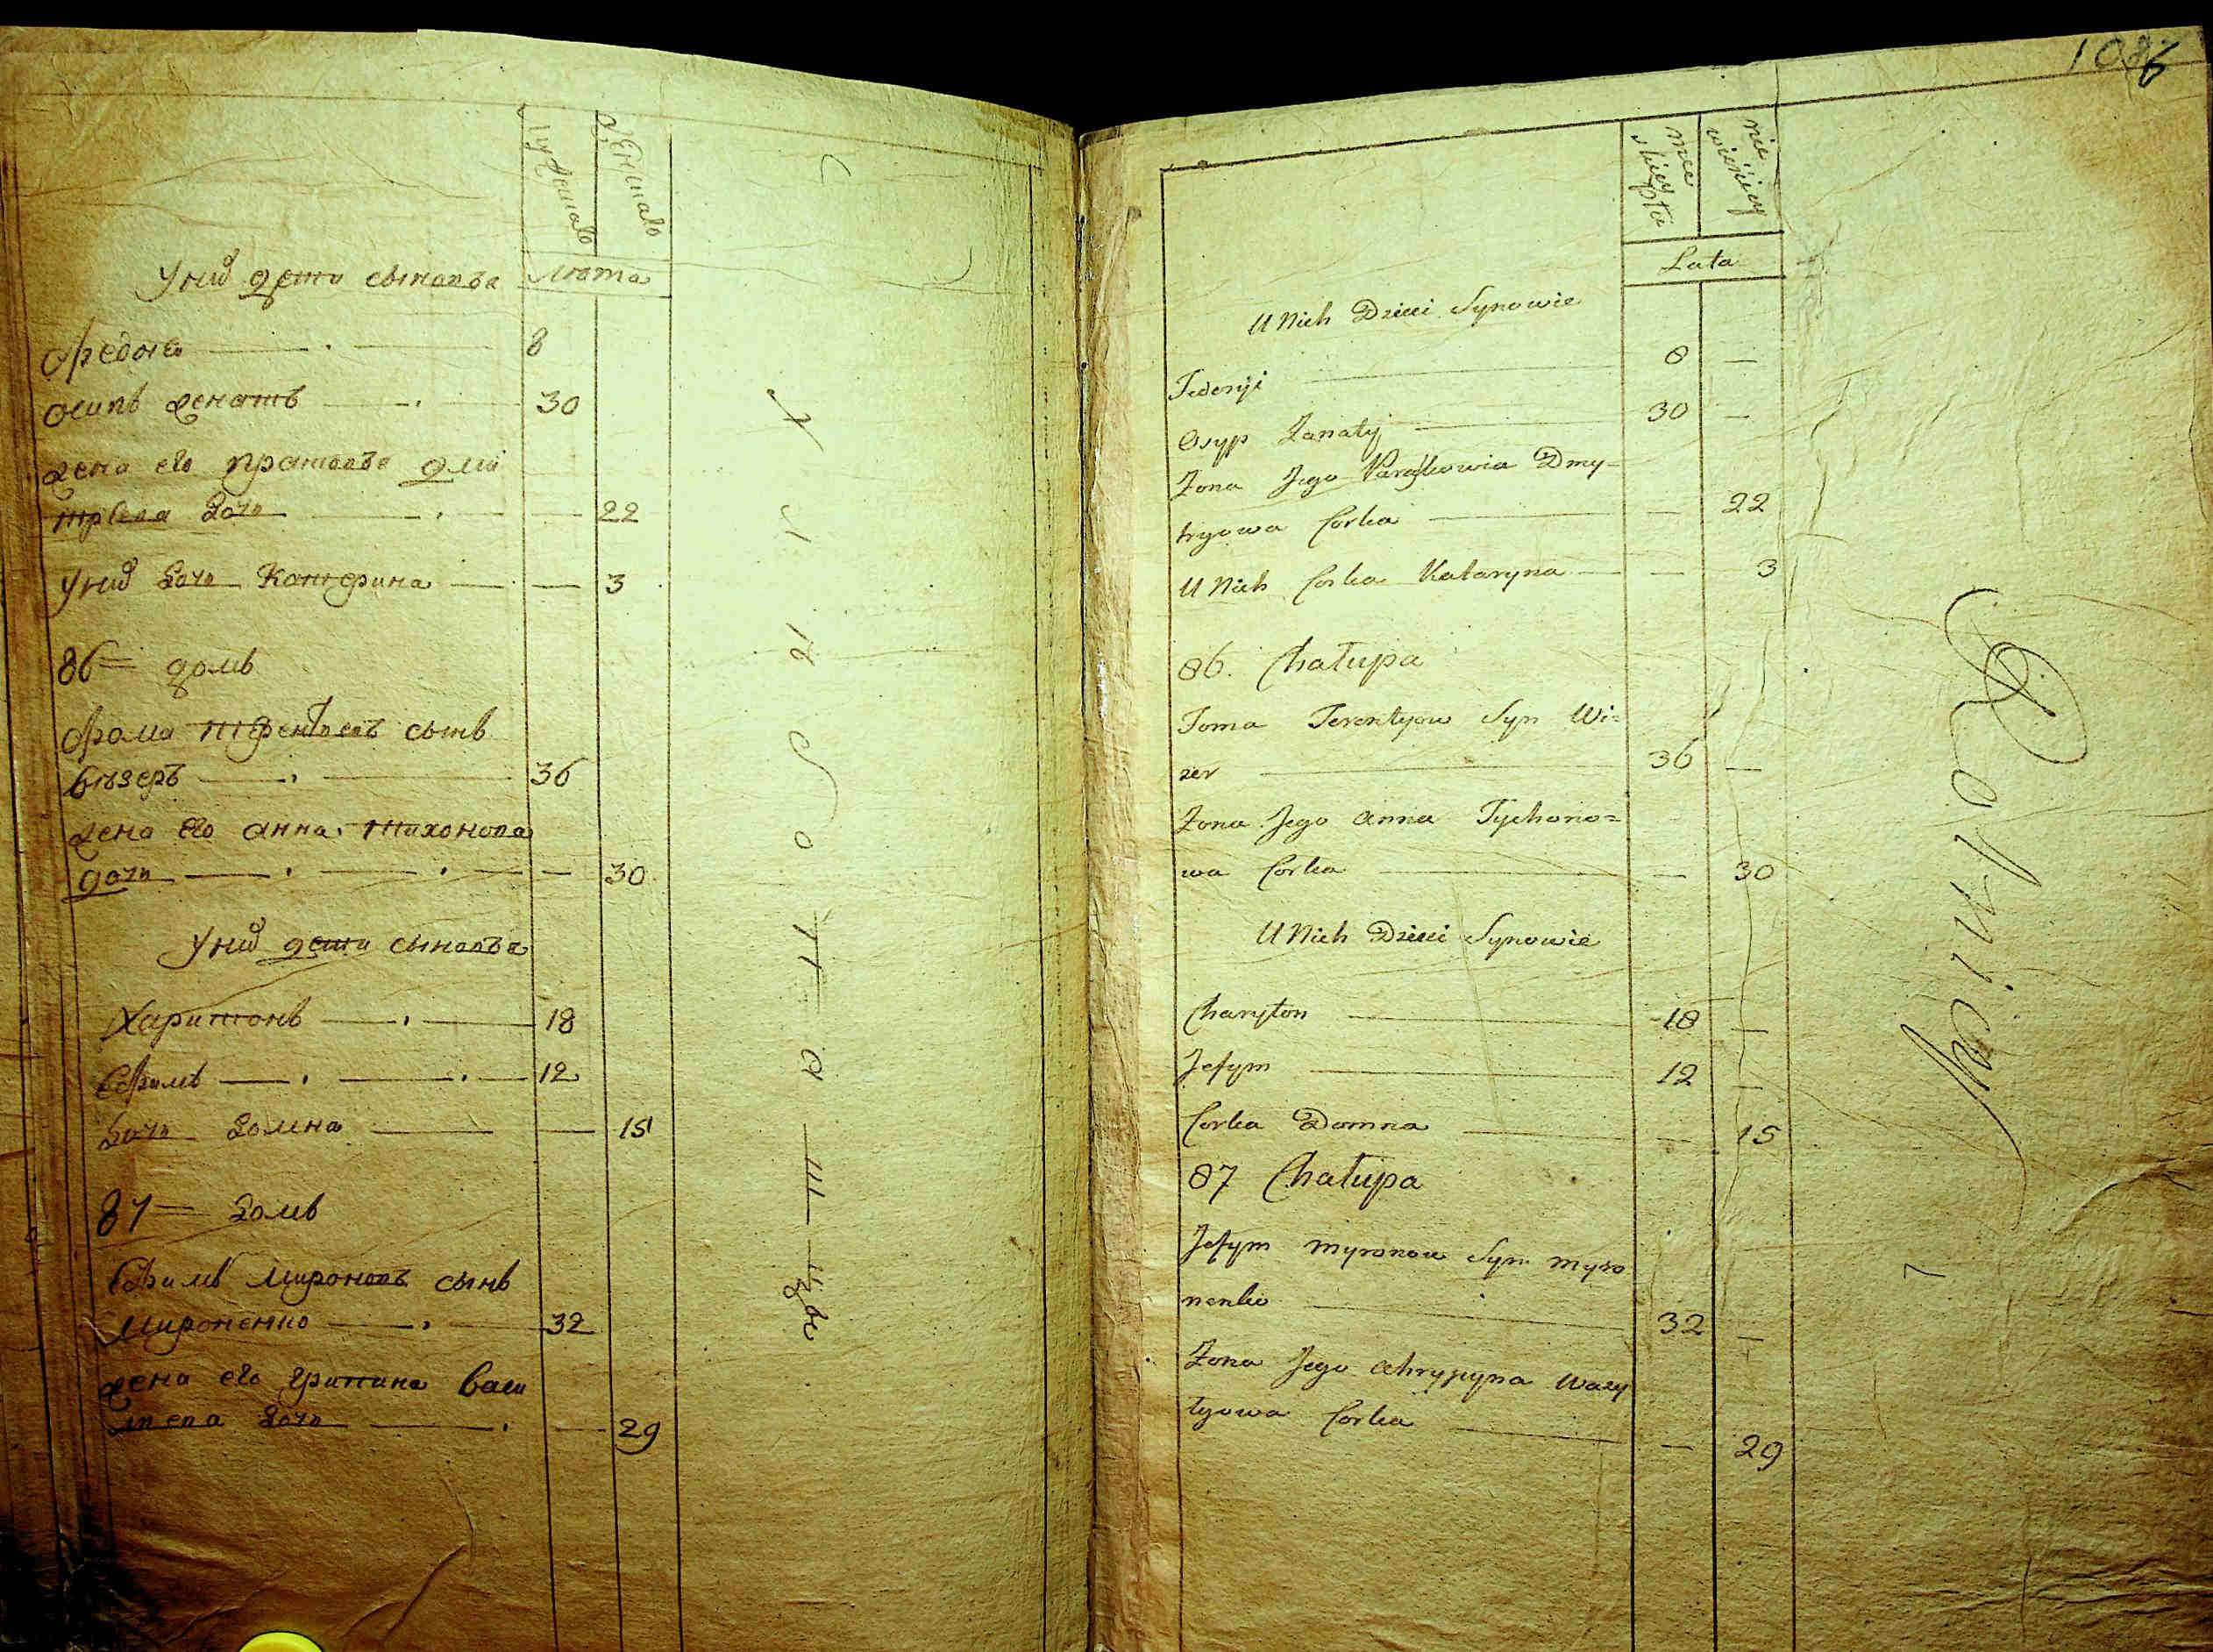 мужеска
женска
У них дети сыновья Лѣта
Федосей 8
Осипъ женатъ 30
жена его прасковья дми
трiева дочь 22
У них дочь Катерина 3
86 = домъ
Фома терентьевъ сынъ
вѣзеръ 36
жена его анна тихонова
дочь 30
У них дети сыновья
Харитонъ 18
Ефимъ 12
дочь домна 15
87 = домъ
Ефимъ мироновъ сынъ
мироненко 32
жена его грипина васи
лiева дочь 29
1086
męz
nie
wieściey
Lata
U Nich Dzieci Synowie
Fedosiji 8 —
Osyp Żonaty 30 —
Żona Jego Paraskowia Dmy=
tryowa Corka — 22
U Nich Corka Kataryna — 3
86. Chałupa
Foma Terentyow Syn Wi=
zer 36 —
Żona Jego Anna Tychono=
wa Corka — 30
U Nich Dzieci Synowie
Charyton 18 —
Jefym 12 —
Corka Domna — 15
87 Chałupa
Jefym Myronow Syn Myro
nenko 32 —
Żona Jego Ahrypyna Wasy
lyowa Corka — 29
Rolnicy